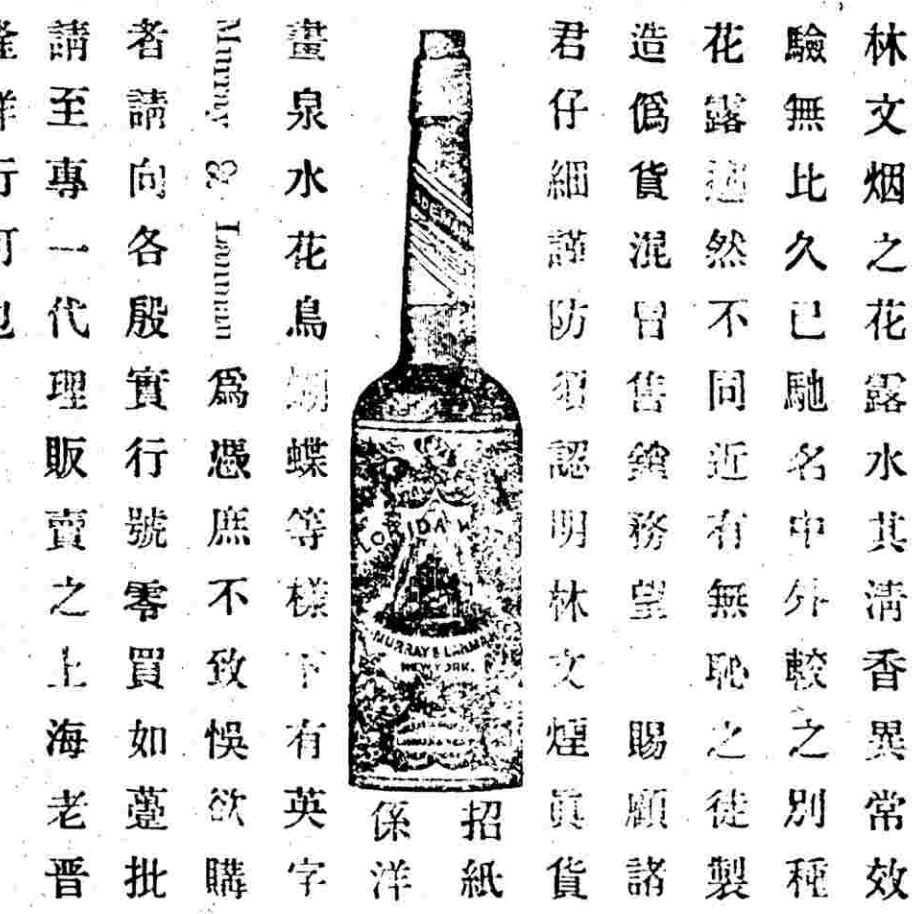 林文烟之花露水其淸香異常效
驗無比久已馳名中外較之別種
花露逈然不同近有無恥之徒製
造僞貨混冒售銷務望 賜顧諸
君仔細謹防須認明林文煙眞貨
招紙
係洋
畫泉水花鳥蝴蝶等樣下有英字
Murray & Lanman 爲憑庶不致悞欲購
者請向各殷實行號零買如躉批
請至專一代理販賣之上海老晋
隆洋行可也
LORIDA W
MURRAY & LANMAN
NEW YORK.